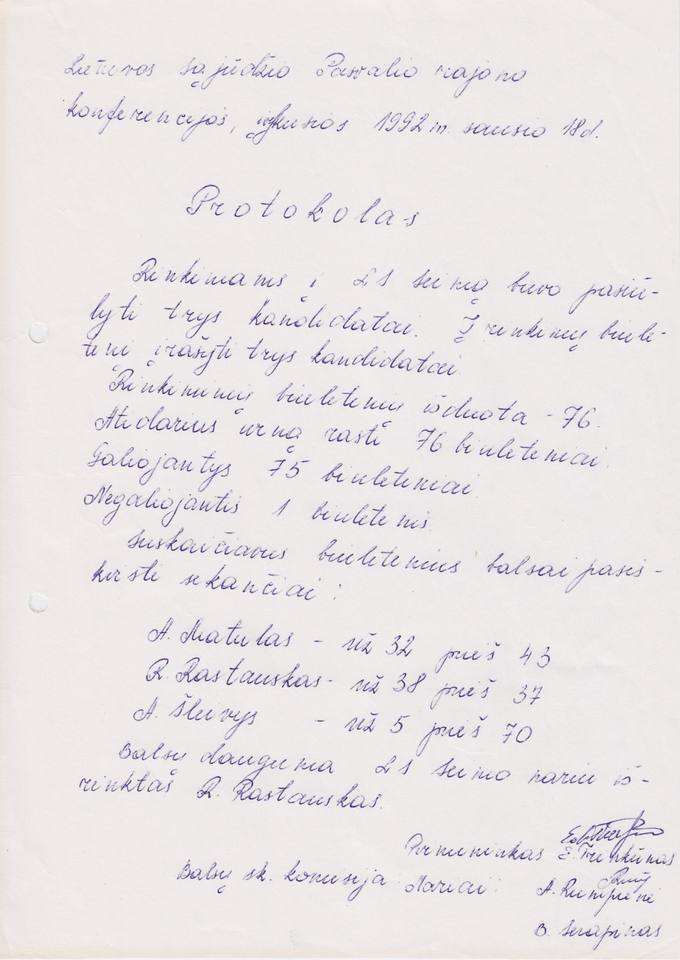 Lietuvos Sąjūdžio Pasvalio rajono
konferencijos, įvykusios 1992 m. sausio 18 d.
Protokolas
Rinkimams į LS seimą buvo pasiū-
lyti trys kandidatai. Į rinkimų biule-
tenį įrašyti trys kandidatai
Rinkiminių biuletenių išduota - 76.
Atidarius urną rasti 76 biuleteniai.
Galiojantys 75 biuleteniai.
Negaliojantis 1 biuletenis.
Suskaičiavus biuletenius balsai pasis-
kirstė sekančiai:
A. Matulas - už 32 prieš 43
R. Rastauskas - už 38 prieš 37
A. Šluvys - už 5 prieš 70
Balsų dauguma LS seimo nariu iš-
rinktas R. Rastauskas.
Pirmininkas E. Trinkūnas
Balsų sk. komisija Nariai: A.
B. Serapinas